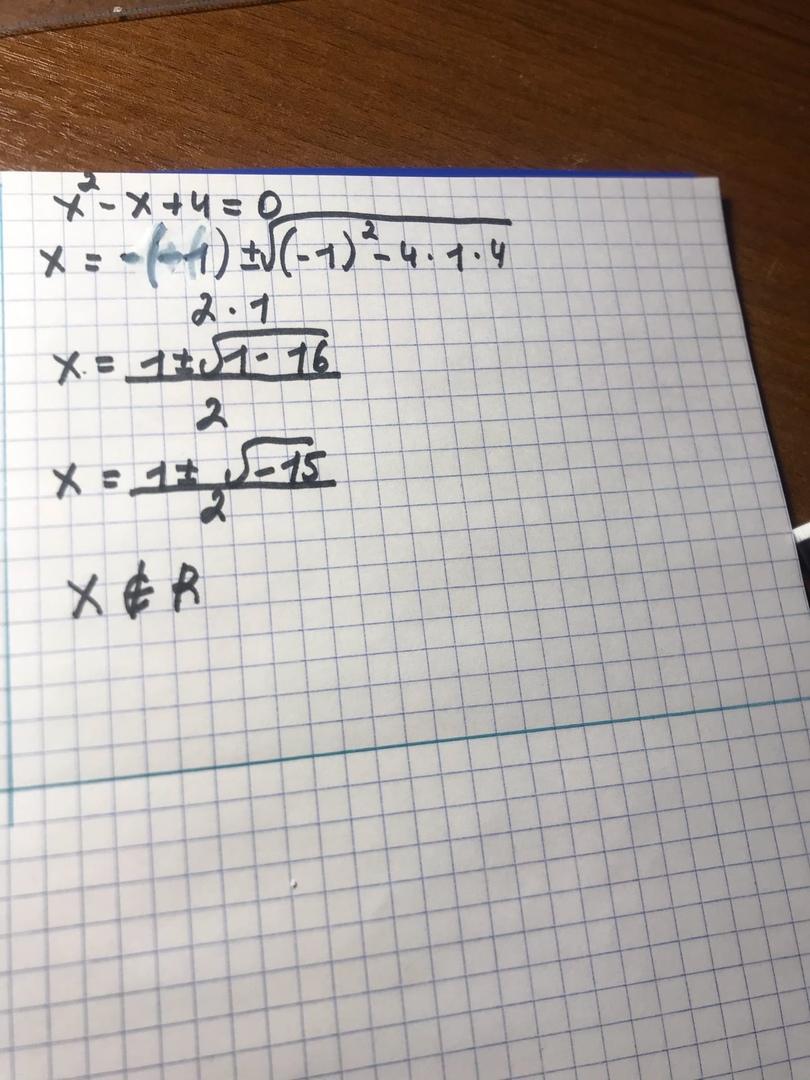 x² - x + 4 = 0
x = -(-1) ± √((-1)² - 4 · 1 · 4)
2 · 1
x = 1 ± √(1 - 16)
2
x = 1 ± √(-15)
2
x ∉ R